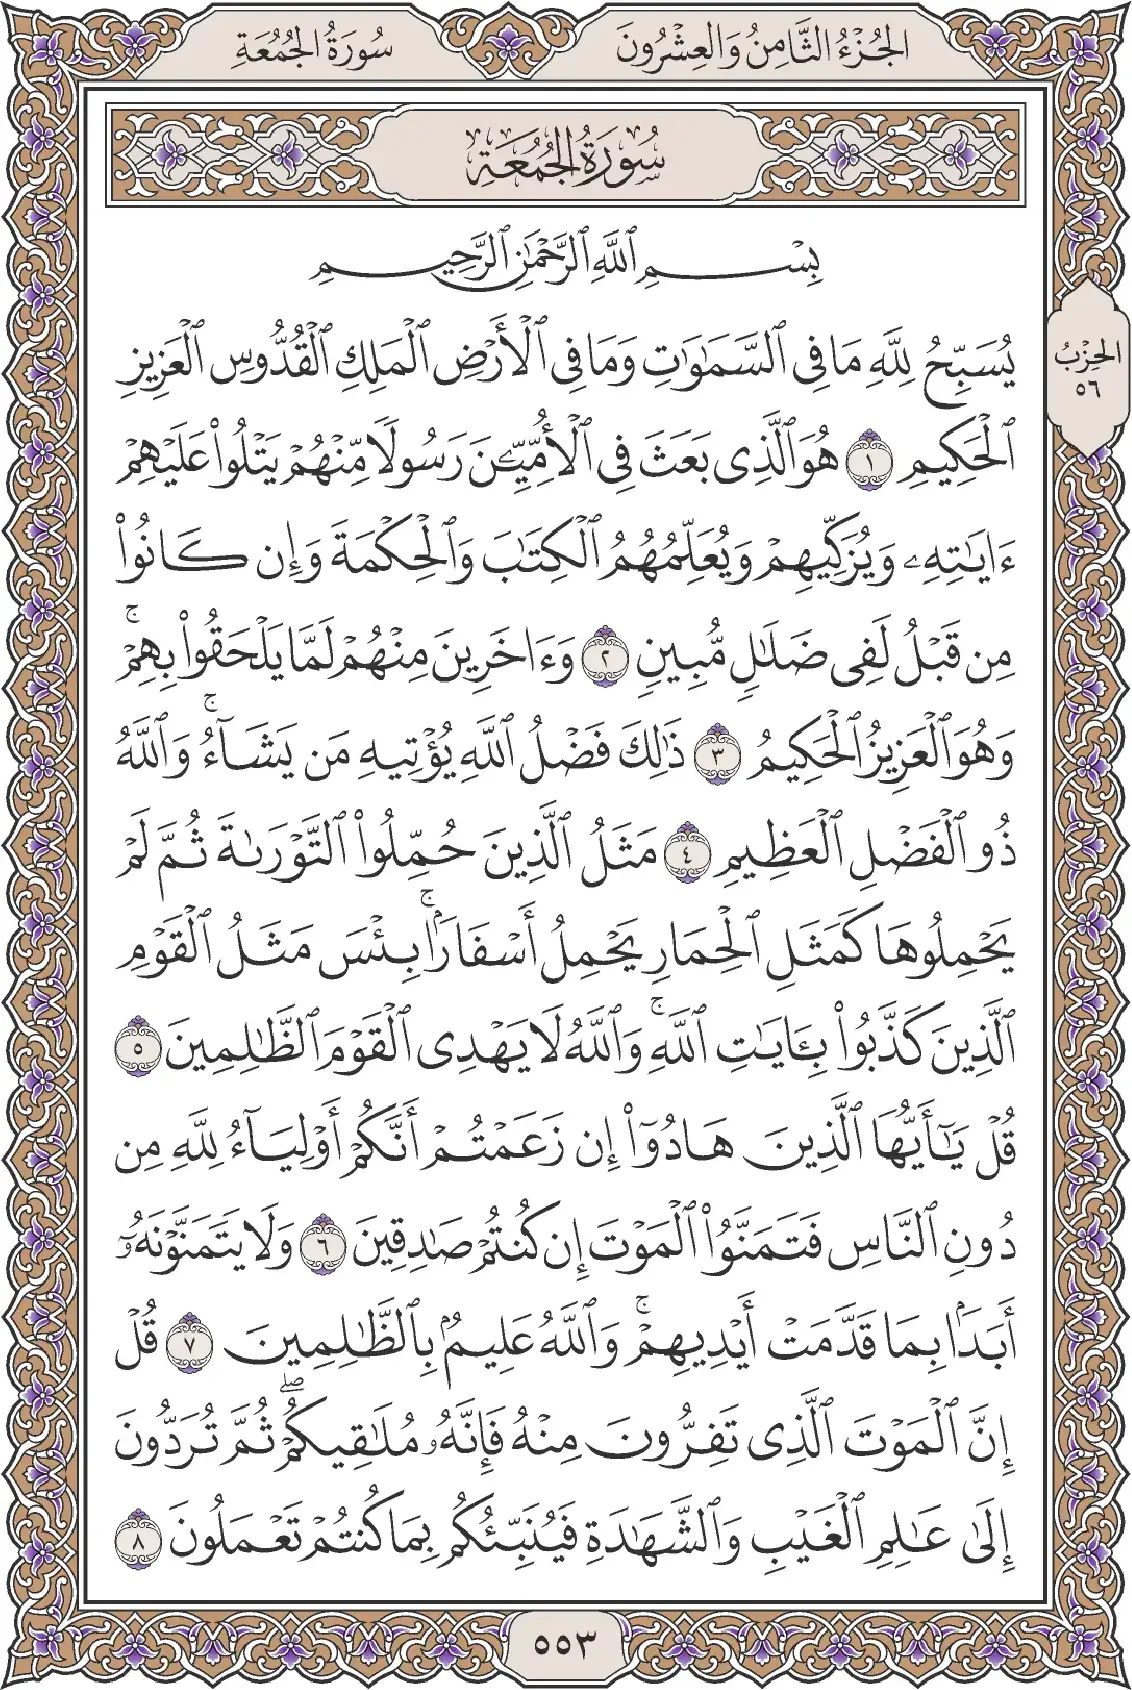 الجُزْءُ الثَّامِنُ وَالعِشْرُونَ
سُورَةُ الجُمُعَةِ
سُورَةُ الجُمُعَةِ
بِسْمِ ٱللَّهِ ٱلرَّحْمَٰنِ ٱلرَّحِيمِ
يُسَبِّحُ لِلَّهِ مَا فِي ٱلسَّمَٰوَٰتِ وَمَا فِي ٱلْأَرْضِ ٱلْمَلِكِ ٱلْقُدُّوسِ ٱلْعَزِيزِ
الحِزْبُ
٥٦
ٱلْحَكِيمِ ١ هُوَ ٱلَّذِي بَعَثَ فِي ٱلْأُمِّيِّـۧنَ رَسُولًا مِّنْهُمْ يَتْلُوا۟ عَلَيْهِمْ
ءَايَٰتِهِۦ وَيُزَكِّيهِمْ وَيُعَلِّمُهُمُ ٱلْكِتَٰبَ وَٱلْحِكْمَةَ وَإِن كَانُوا۟
مِن قَبْلُ لَفِي ضَلَٰلٍ مُّبِينٍ ٢ وَءَاخَرِينَ مِنْهُمْ لَمَّا يَلْحَقُوا۟ بِهِمْۚ
وَهُوَ ٱلْعَزِيزُ ٱلْحَكِيمُ ٣ ذَٰلِكَ فَضْلُ ٱللَّهِ يُؤْتِيهِ مَن يَشَآءُۚ وَٱللَّهُ
ذُو ٱلْفَضْلِ ٱلْعَظِيمِ ٤ مَثَلُ ٱلَّذِينَ حُمِّلُوا۟ ٱلتَّوْرَىٰةَ ثُمَّ لَمْ
يَحْمِلُوهَا كَمَثَلِ ٱلْحِمَارِ يَحْمِلُ أَسْفَارًۢاۚ بِئْسَ مَثَلُ ٱلْقَوْمِ
ٱلَّذِينَ كَذَّبُوا۟ بِـَٔايَٰتِ ٱللَّهِۚ وَٱللَّهُ لَا يَهْدِي ٱلْقَوْمَ ٱلظَّٰلِمِينَ ٥
قُلْ يَٰٓأَيُّهَا ٱلَّذِينَ هَادُوٓا۟ إِن زَعَمْتُمْ أَنَّكُمْ أَوْلِيَآءُ لِلَّهِ مِن
دُونِ ٱلنَّاسِ فَتَمَنَّوُا۟ ٱلْمَوْتَ إِن كُنتُمْ صَٰدِقِينَ ٦ وَلَا يَتَمَنَّوْنَهُۥٓ
أَبَدًۢا بِمَا قَدَّمَتْ أَيْدِيهِمْۚ وَٱللَّهُ عَلِيمٌۢ بِٱلظَّٰلِمِينَ ٧ قُلْ
إِنَّ ٱلْمَوْتَ ٱلَّذِي تَفِرُّونَ مِنْهُ فَإِنَّهُۥ مُلَٰقِيكُمْۖ ثُمَّ تُرَدُّونَ
إِلَىٰ عَٰلِمِ ٱلْغَيْبِ وَٱلشَّهَٰدَةِ فَيُنَبِّئُكُم بِمَا كُنتُمْ تَعْمَلُونَ ٨
٥٥٣